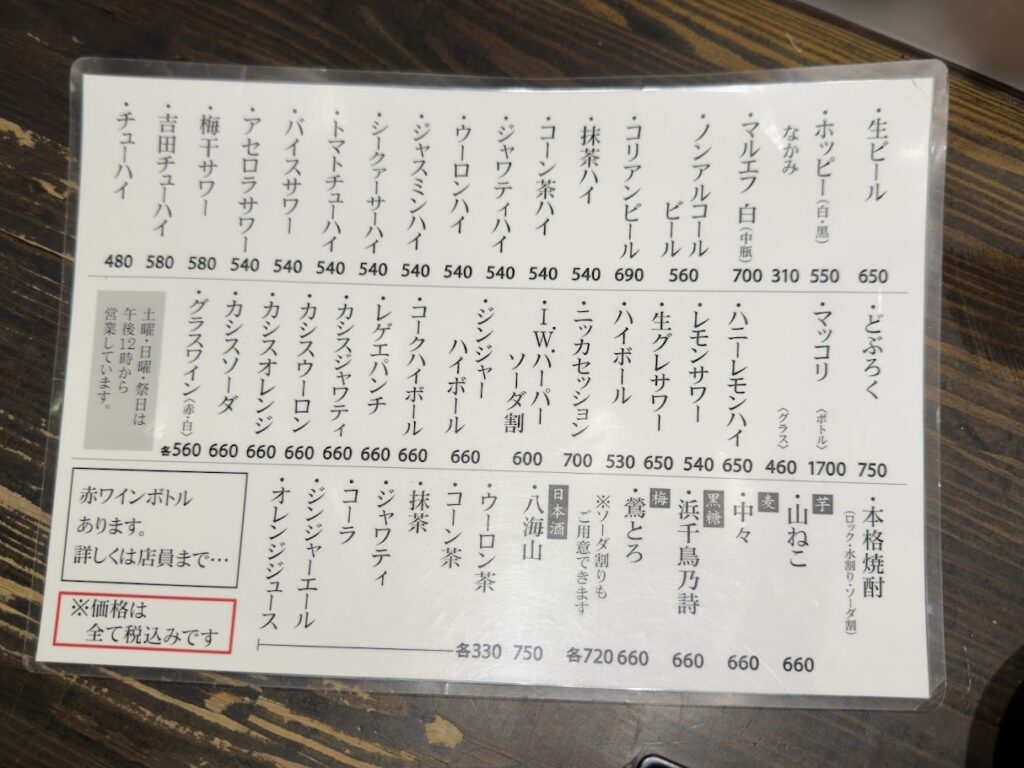 ・生ビール 650
・ホッピー(白・黒) 550
なかみ 310
・マルエフ 白(中瓶) 700
・ノンアルコール
ビール 560
・コリアンビール 690
・抹茶ハイ 540
・コーン茶ハイ 540
・ジャワティハイ 540
・ウーロンハイ 540
・ジャスミンハイ 540
・シークァーサーハイ 540
・トマトチューハイ 540
・バイスサワー 540
・アセロラサワー 540
・梅干サワー 580
・吉田チューハイ 580
・チューハイ 480
・どぶろく 750
・マッコリ 〈ボトル〉 1700
〈グラス〉 460
・ハニーレモンハイ 650
・レモンサワー 540
・生グレサワー 650
・ハイボール 530
・ニッカセッション 700
・I.W.ハーパー
ソーダ割 600
・ジンジャー
ハイボール 660
・コークハイボール 660
・レゲエパンチ 660
・カシスジャワティ 660
・カシスウーロン 660
・カシスオレンジ 660
・カシスソーダ 660
・グラスワイン〈赤・白〉 各560
土曜・日曜・祭日は
午後12時から
営業しています。
・本格焼酎
(ロック・水割り・ソーダ割)
芋
・山ねこ 660
麦
・中々 660
黒糖
・浜千鳥乃詩 660
梅
・鶯とろ 660
※ソーダ割りも
ご用意できます 各720
日本酒
・八海山 750
・ウーロン茶
・コーン茶
・抹茶
・ジャワティ
・コーラ
・ジンジャーエール
・オレンジジュース
各330
赤ワインボトル
あります。
詳しくは店員まで…
※価格は
全て税込みです